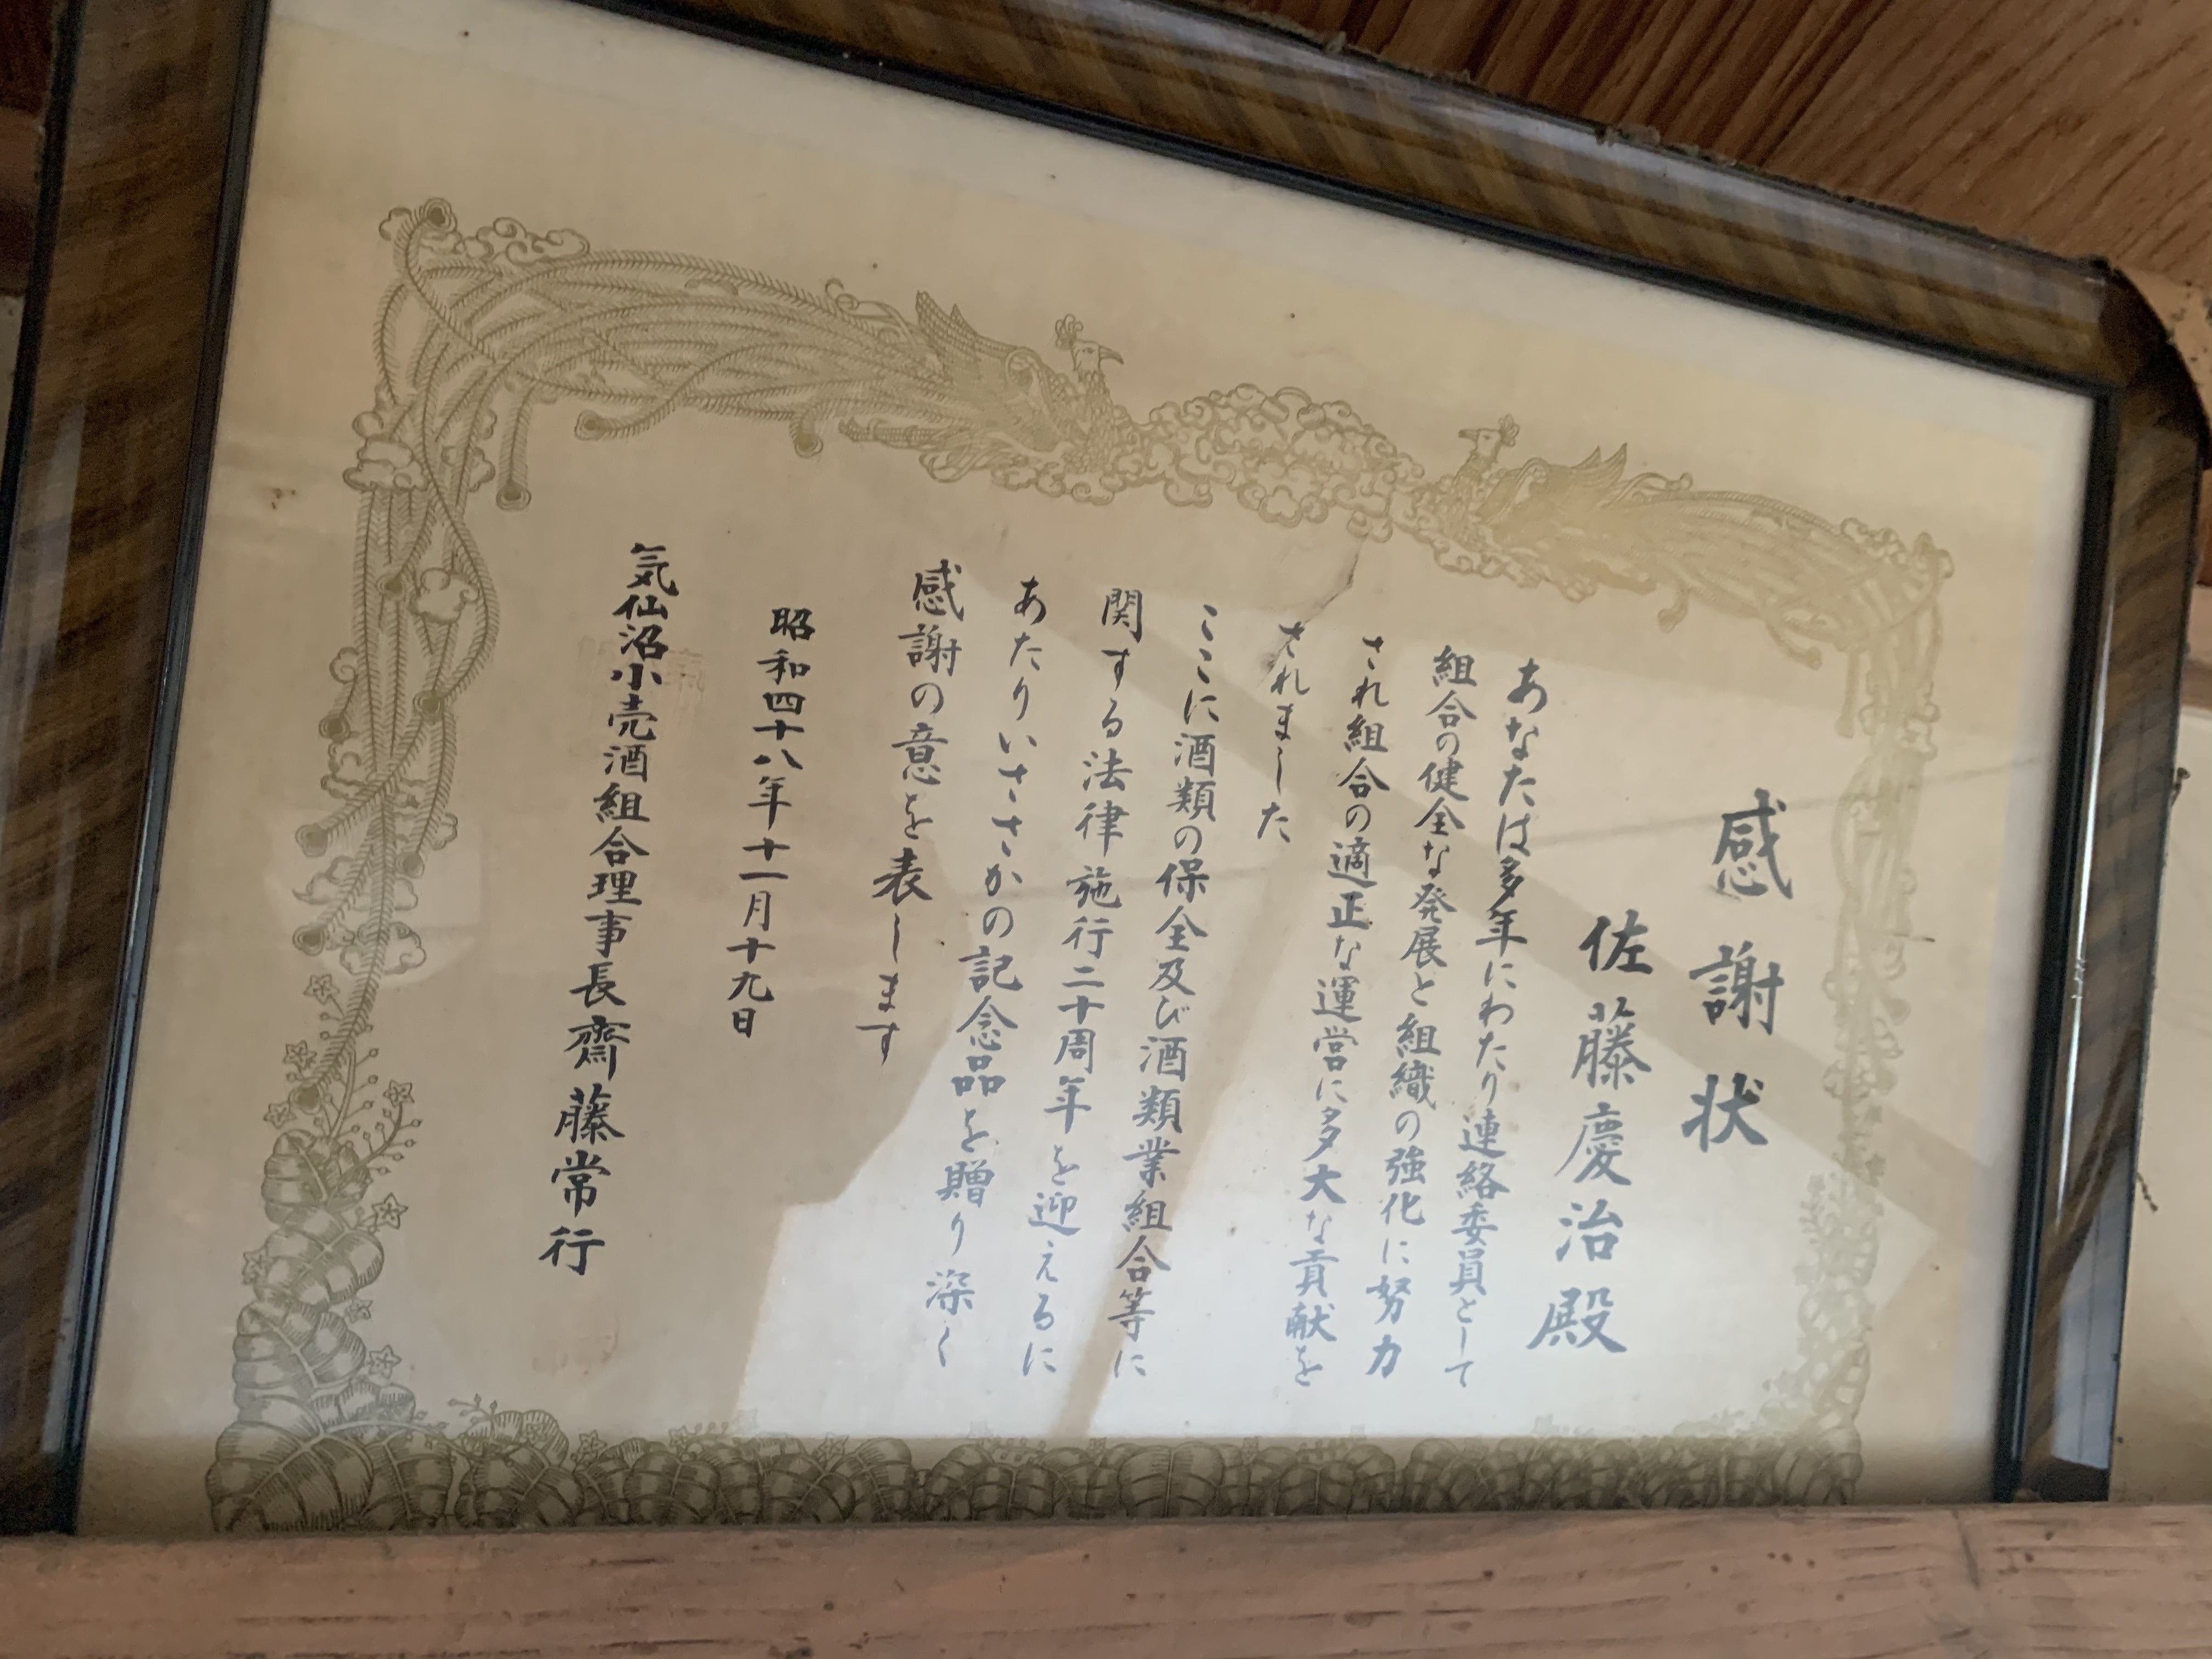 感謝状
佐藤慶治殿
あなたは多年にわたり連絡委員として
組合の健全な発展と組織の強化に努力
され組合の適正な運営に多大な貢献を
されました
ここに酒類の保全及び酒類業組合等に
関する法律施行二十周年を迎えるに
あたりいささかの記念品を贈り深く
感謝の意を表します
昭和四十八年十一月十九日
気仙沼小売酒組合理事長齋藤常行